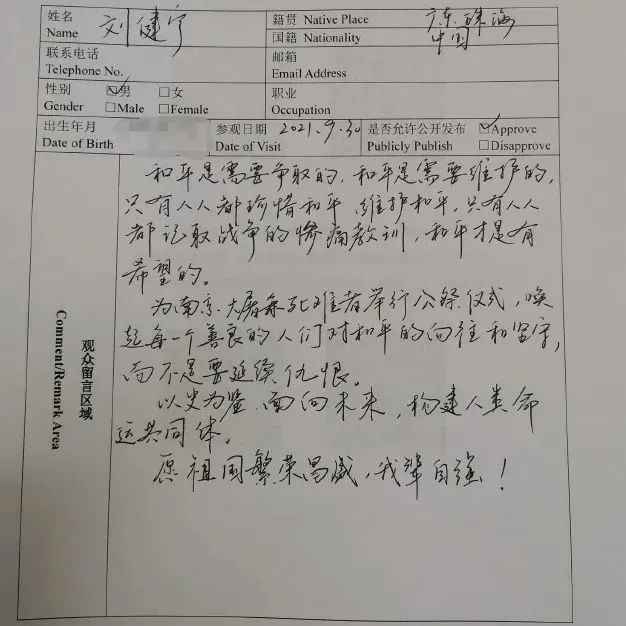 姓名 Name 刘健宁 籍贯 Native Place 广东珠海
国籍 Nationality 中国
联系电话 Telephone No. 邮箱 Email Address
性别 Gender ☑男 Male □女 Female 职业 Occupation
出生年月 Date of Birth 参观日期 Date of Visit 2021.9.30 是否允许公开发布 Publicly Publish ☑Approve □Disapprove
观众留言区域 Comment/Remark Area
和平是需要争取的,和平是需要维护的,
只有人人都珍惜和平、维护和平,只有人人
都记取战争的惨痛教训,和平才是有
希望的。
为南京大屠杀死难者举行公祭仪式,唤
起每一个善良的人们对和平的向往和坚守,
而不是要延续仇恨。
以史为鉴、面向未来,构建人类命
运共同体。
愿祖国繁荣昌盛,我辈自强!